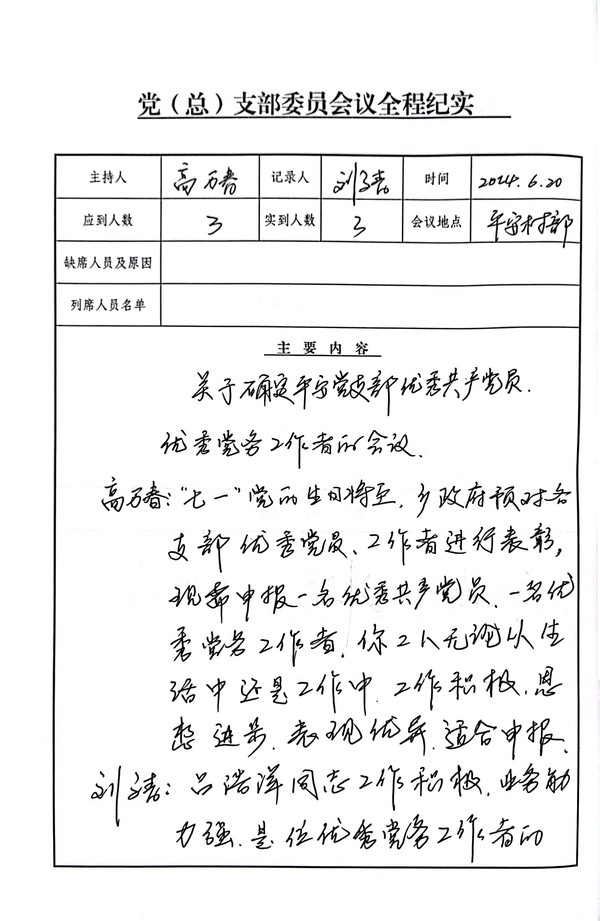 党（总）支部委员会议全程纪实
主持人 高万春 记录人 刘 时间 2024.6.20
应到人数 3 实到人数 3 会议地点 平安村部
缺席人员及原因
列席人员名单
主要内容
关于确定平安党支部优秀共产党员.
优秀党务工作者的会议.
高万春："七一"党的生日将至.乡政府预对各
支部优秀党员、工作者进行表彰,
现需申报一名优秀共产党员.一名优
秀党务工作者.你2人无论从生
活中还是工作中.工作积极.思
想进步.表现优异.适合申报.
刘：吕浩洋同志工作积极.业务能
力强.是位优秀党务工作者的